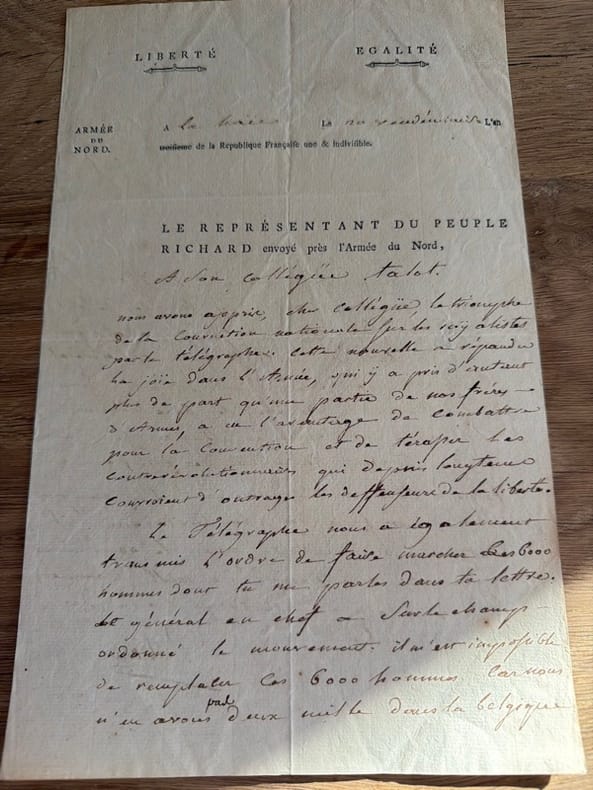 LIBERTÉ EGALITÉ
ARMÉE
DU
NORD.
A la haie Le 20 vendémiaire L'an
troisieme de la Republique Française une & indivisible.
LE REPRÉSENTANT DU PEUPLE
RICHARD envoyé près l'Armée du Nord,
A Son Collégüe talot.
nous avons appris, cher Collégüe, le triomphe
de la Convention nationale sur les royalistes
par le télégraphe. Cette nouvelle a répandu
la joie dans l'Armée, qui y a pris d'autant
plus de part qu'une partie de nos frères
d'Armes, a eu l'avantage de combattre
pour la Convention et de téraser les
contrerévolutionnaires qui depuis longtems
couvroient d'outrages les deffenseurs de la liberté.
Le Télégraphe nous a également
transmis l'ordre de faire marcher les 6000
hommes dont tu me parles dans ta lettre.
Le général en chef a Sur le champ
ordonné le mouvement. il m'est impossible
de remplacer Ces 6000 hommes. Car nous
n'en avons pas deux mille dans la belgique